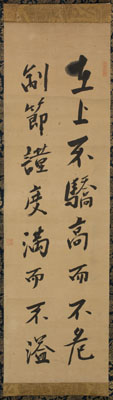 在上不驕高而不危
制節謹度滿而不溢